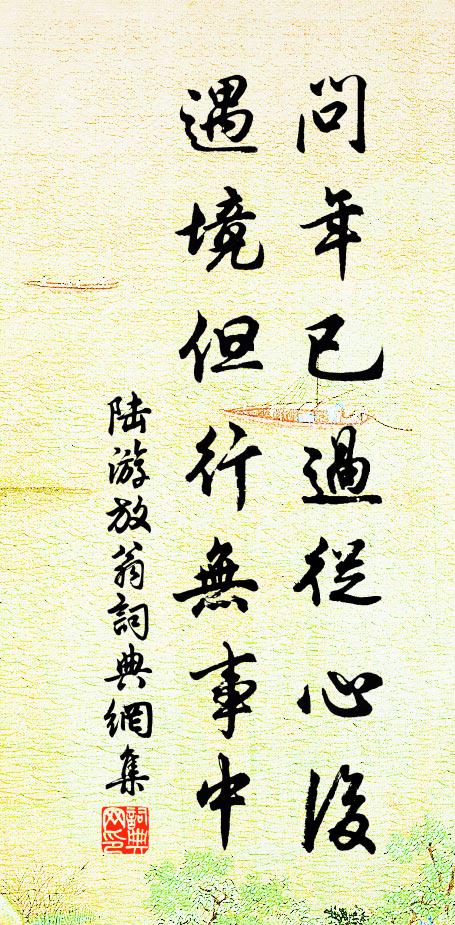 問年已過從心後
遇境但行無事中
陸游放翁詞典網集
詞典
網印